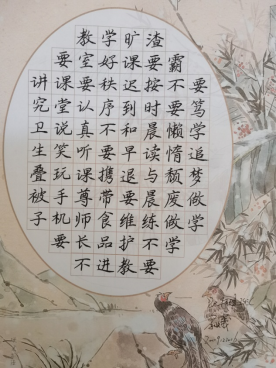 要笃学追梦做学
霸不要懒惰颓废做学
渣要按时晨读与晨练不要
旷课迟到和早退要维护教
学好秩序不要携带食品进
教室要认真听课尊师长不
要课堂说笑玩手机要
讲究卫生叠被子